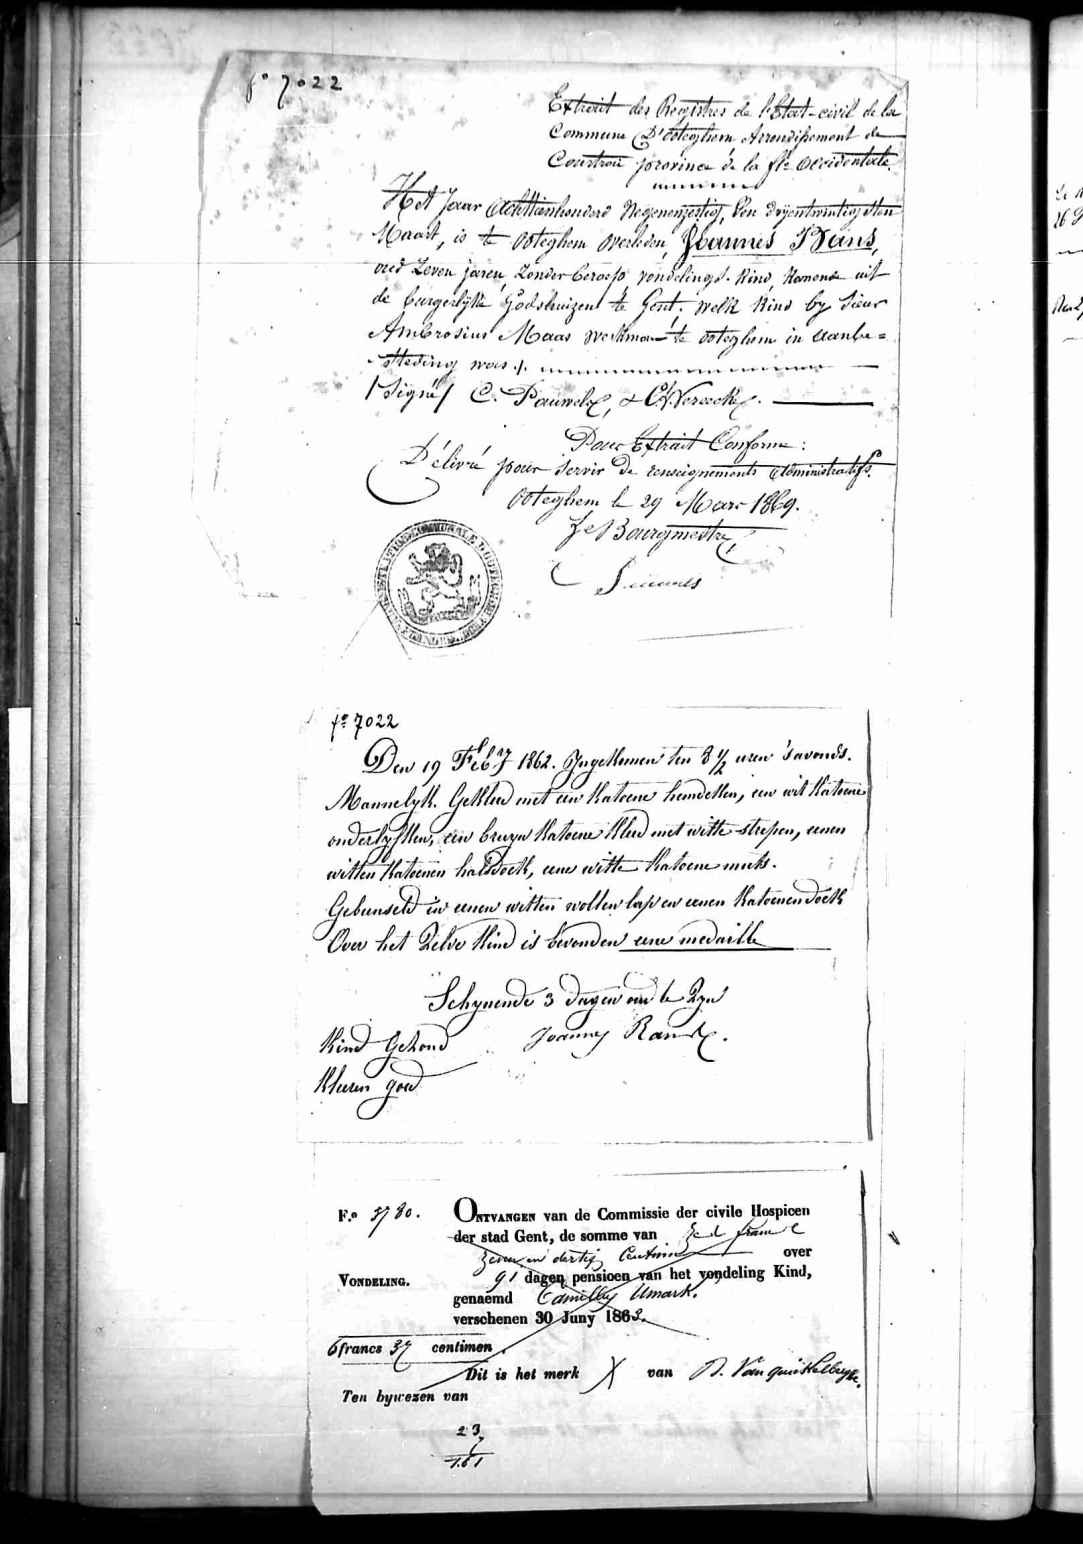 f° 7022
Extrait des Registres de l'État-civil de la
Commune D'Ooteghem Arrondissement de
Courtrai province de la fl. Occidentale.
Het Jaar Achttienhonderd Negenenzestig, den dryentwintigsten
Maart, is te Ooteghem overleden, Joannes Rans,
oud zeven jaren, zonder beroep vondelings-kind, komende uit
de burgerlijke Godshuizen te Gent. welk kind by Sieur
Ambrosius Maas werkman te Ooteghem in aanbe=
steding was.
/Signé/ C. Pauwels, & Ch. Vereecke.
Pour Extrait Conforme:
Délivré pour servir de renseignements administratifs.
Ooteghem le 29 Mars 1869.
Le Bourgmestre,
f° 7022
Den 19 Feb 1862. Ingekomen ten 8 1/2 uren 's avonds.
Mannelyk. Gekleed met een katoene hemdeken, een wit katoene
onderlyfken, een bruyn katoene kleed met witte strepen, eenen
witten katoenen halsdoek, eene witte katoene muts.
Gebunseld in eenen witten wollen lap en eenen katoenen doek
Over het zelve kind is bevonden eene medaille
Schynende 3 dagen oud te zyn
Kind Gezond Joannes Rans.
Kleeren goed
F.° 3780. Ontvangen van de Commissie der civile Hospicen
der stad Gent, de somme van zes franc
zeven en dertig Centimen over
Vondeling. 91 dagen pensioen van het vondeling Kind,
genaemd Camillus Umark.
verschenen 30 Juny 1863.
6 francs 37 centimen
Dit is het merk X van B. Van quickelberge.
Ten bywezen van
23